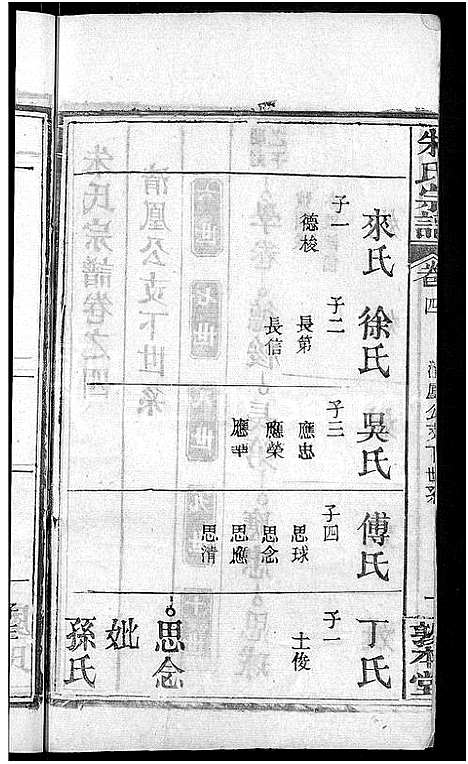 朱氏宗譜
卷四
清鳳公支下世系
敦本堂
來氏
子一
德梭
徐氏
子二
長第
長信
吳氏
子三
應忠
應榮
應華
傅氏
子四
思球
思念
思應
思清
丁氏
子一
士俊
思念
妣
孫氏
朱氏宗譜卷之四
清鳳公支下世系